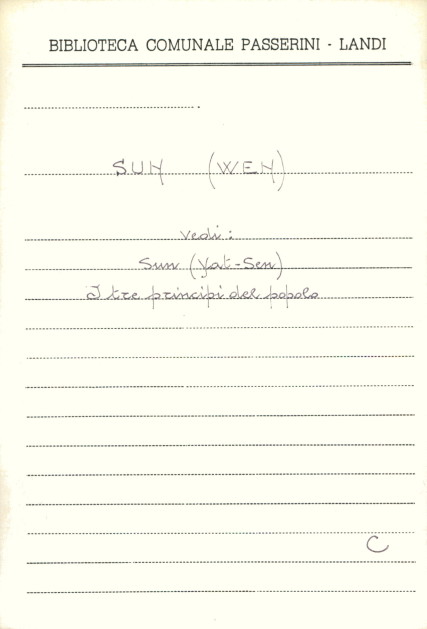 BIBLIOTECA COMUNALE PASSERINI - LANDI
SUN (WEN)
vedi:
Sun (Yat-Sen)
I tre principi del popolo
C